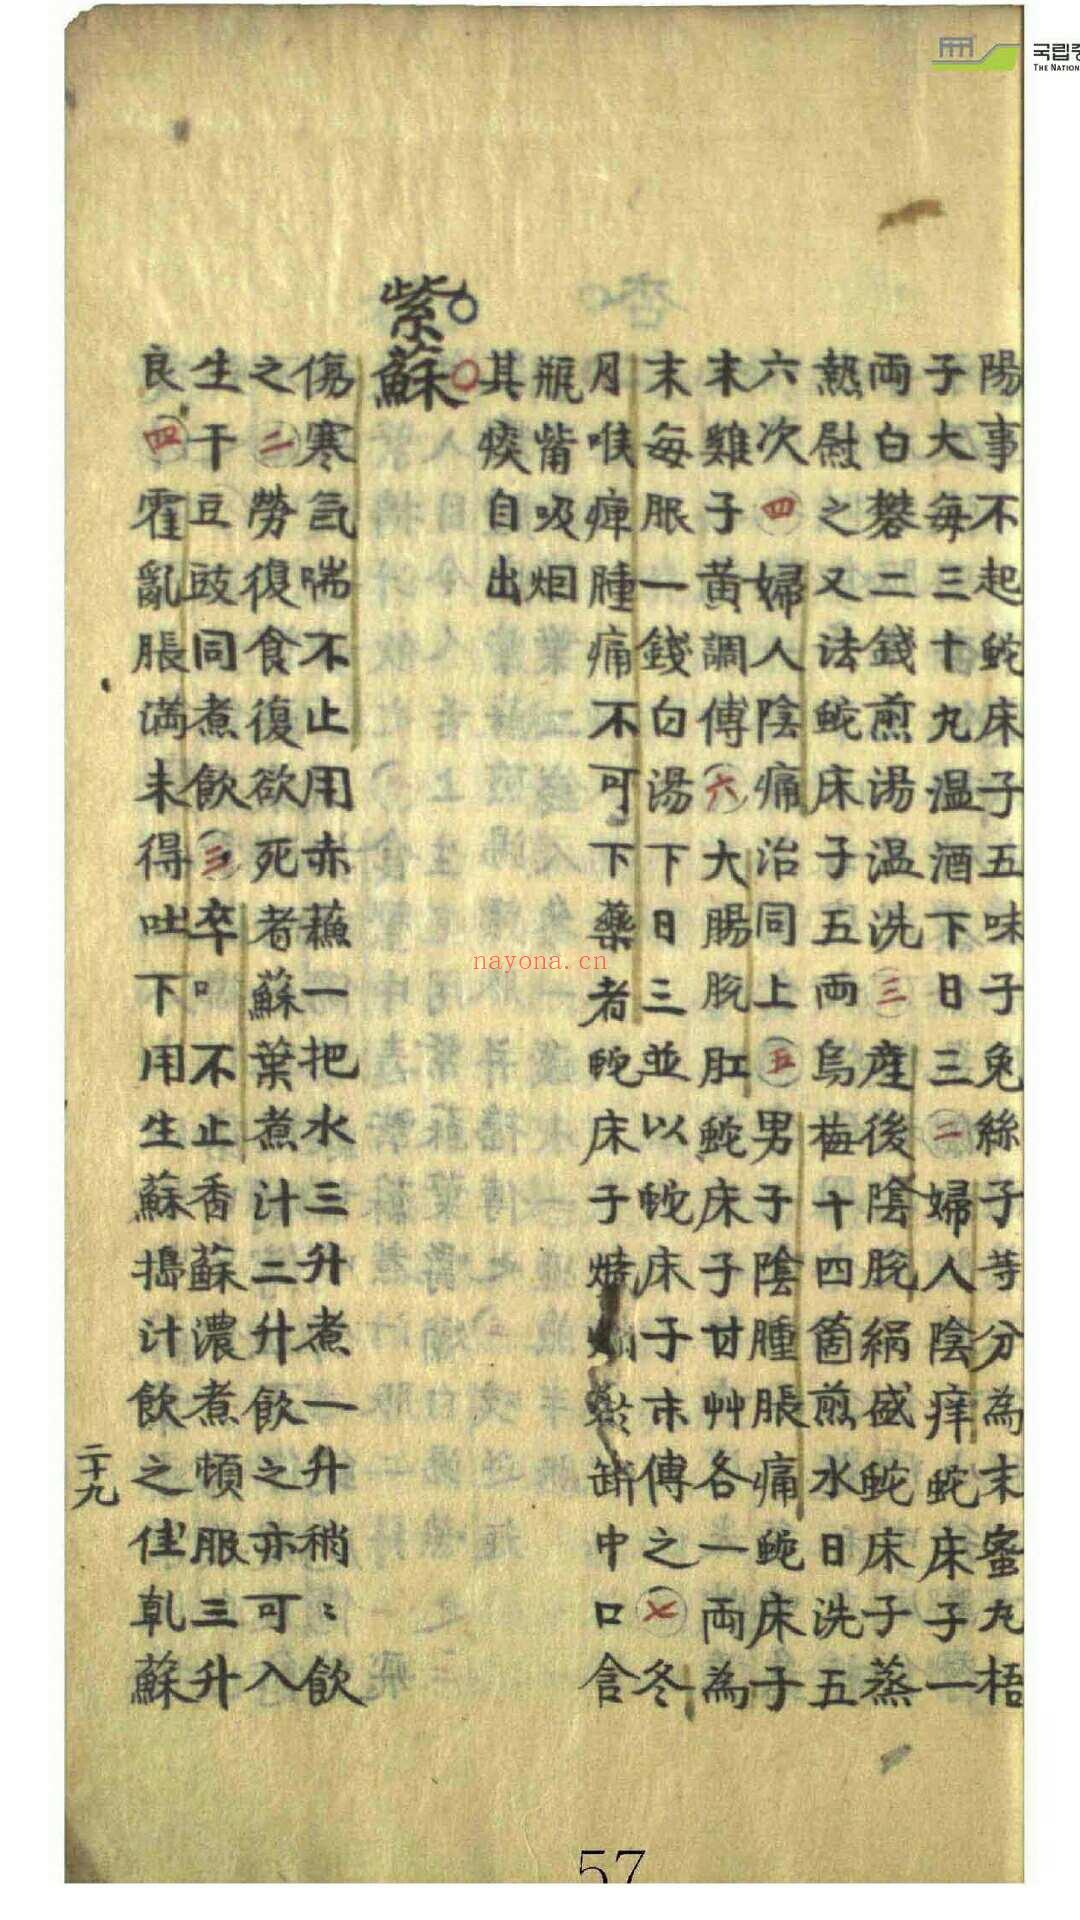 陽事不起蛇床子五味子兔絲子等分為末蜜丸梧
子大每三十九温酒下日三二婦人陰痒蛇床子一
両白礬二錢煎湯温洗三産後陰脫絹盛蛇床子蒸
熱慰之又法蛇床子五両烏梅十四箇煎水日洗五
六次四婦人陰痛治同上五男子陰腫脹痛蛇床子
末雞子黃調傅六大腸脫肛蛇床子甘艸各一両為
末每服一錢白湯下日三並以蛇床子末傅之七冬
月喉痺腫痛不可下藥者蛇床子燒於缾中口含
瓶觜吸烟
其痰自出
紫蘇
傷寒氣喘不止用赤蘓一把水三升煮一升稍〻飲
之二勞復食復欲死者蘇葉煮汁二升飲之亦可入
生干豆豉同煮飲三卒不止香蘇濃煮頓服三升
良四霍亂脹満未得吐下用生蘇搗汁飲之佳乹蘇
二十九
57
국립중
THE NATION
nayona.cn